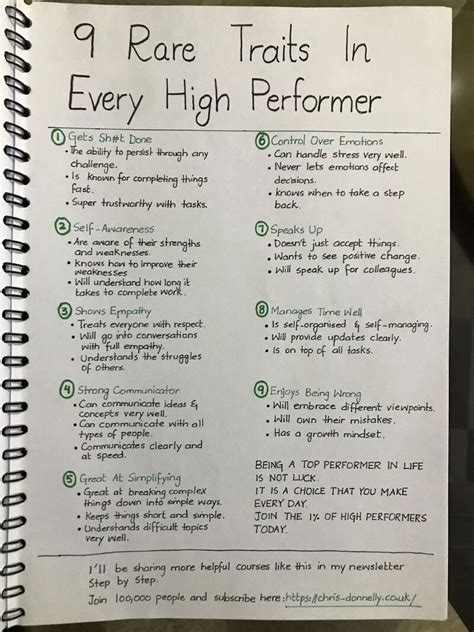 9 Rare Traits In
Every High Performer
1 Gets Sh#t Done
• The ability to persist through any
challenge.
• Is known for completing things
fast.
• Super trustworthy with tasks.
2 Self-Awareness
• Are aware of their strengths
and weaknesses.
• Knows how to improve their
weaknesses
• Will understand how long it
takes to complete work.
3 Shows Empathy
• Treats everyone with respect.
• Will go into conversations
with full empathy.
• Understands the struggles
of others.
4 Strong Communicator
• Can communicate ideas &
concepts very well.
• Can communicate with all
types of people.
• Communicates clearly and
at speed.
5 Great At Simplifying
• Great at breaking complex
things down into simple ways.
• Keeps things short and simple.
• Understands difficult topics
very well.
6 Control Over Emotions
• Can handle stress very well.
• Never lets emotions affect
decisions.
• Knows when to take a step
back.
7 Speaks Up
• Doesn't just accept things.
• Wants to see positive change.
• Will speak up for colleagues.
8 Manages Time Well
• Is self-organised & self-managing.
• Will provide updates clearly.
• Is on top of all tasks.
9 Enjoys Being Wrong
• Will embrace different viewpoints.
• Will own their mistakes.
• Has a growth mindset.
BEING A TOP PERFORMER IN LIFE
IS NOT LUCK.
IT IS A CHOICE THAT YOU MAKE
EVERY DAY.
JOIN THE 1% OF HIGH PERFORMERS
TODAY.
I'll be sharing more helpful courses like this in my newsletter
Step by Step.
Join 100,000 people and subscribe here: https://chris-donnelly.co.uk/